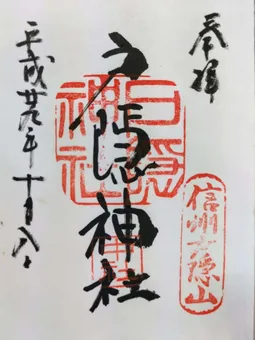 奉拝
戸隠神社
戸隠神社
信州戸隠山
平成廿九年十月八日